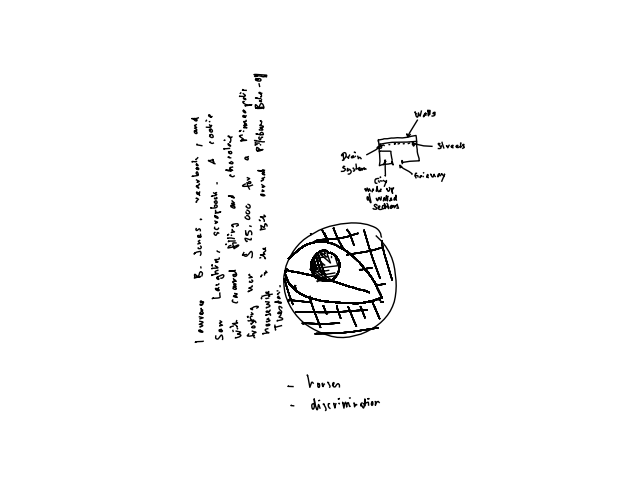 Lawrence B. Jones, yearbook, and
Sam Laughlin, scrapbook. A cookie
with caramel filling and chocolate
frosting won $ 25,000 for a Minneapolis
housewife in the 1st annual Pillsbury Bake-off
Tuesday.
Walls
Streets
Drain
System
Gateway
City
made up
of walled
sections
- horses
- discrimination